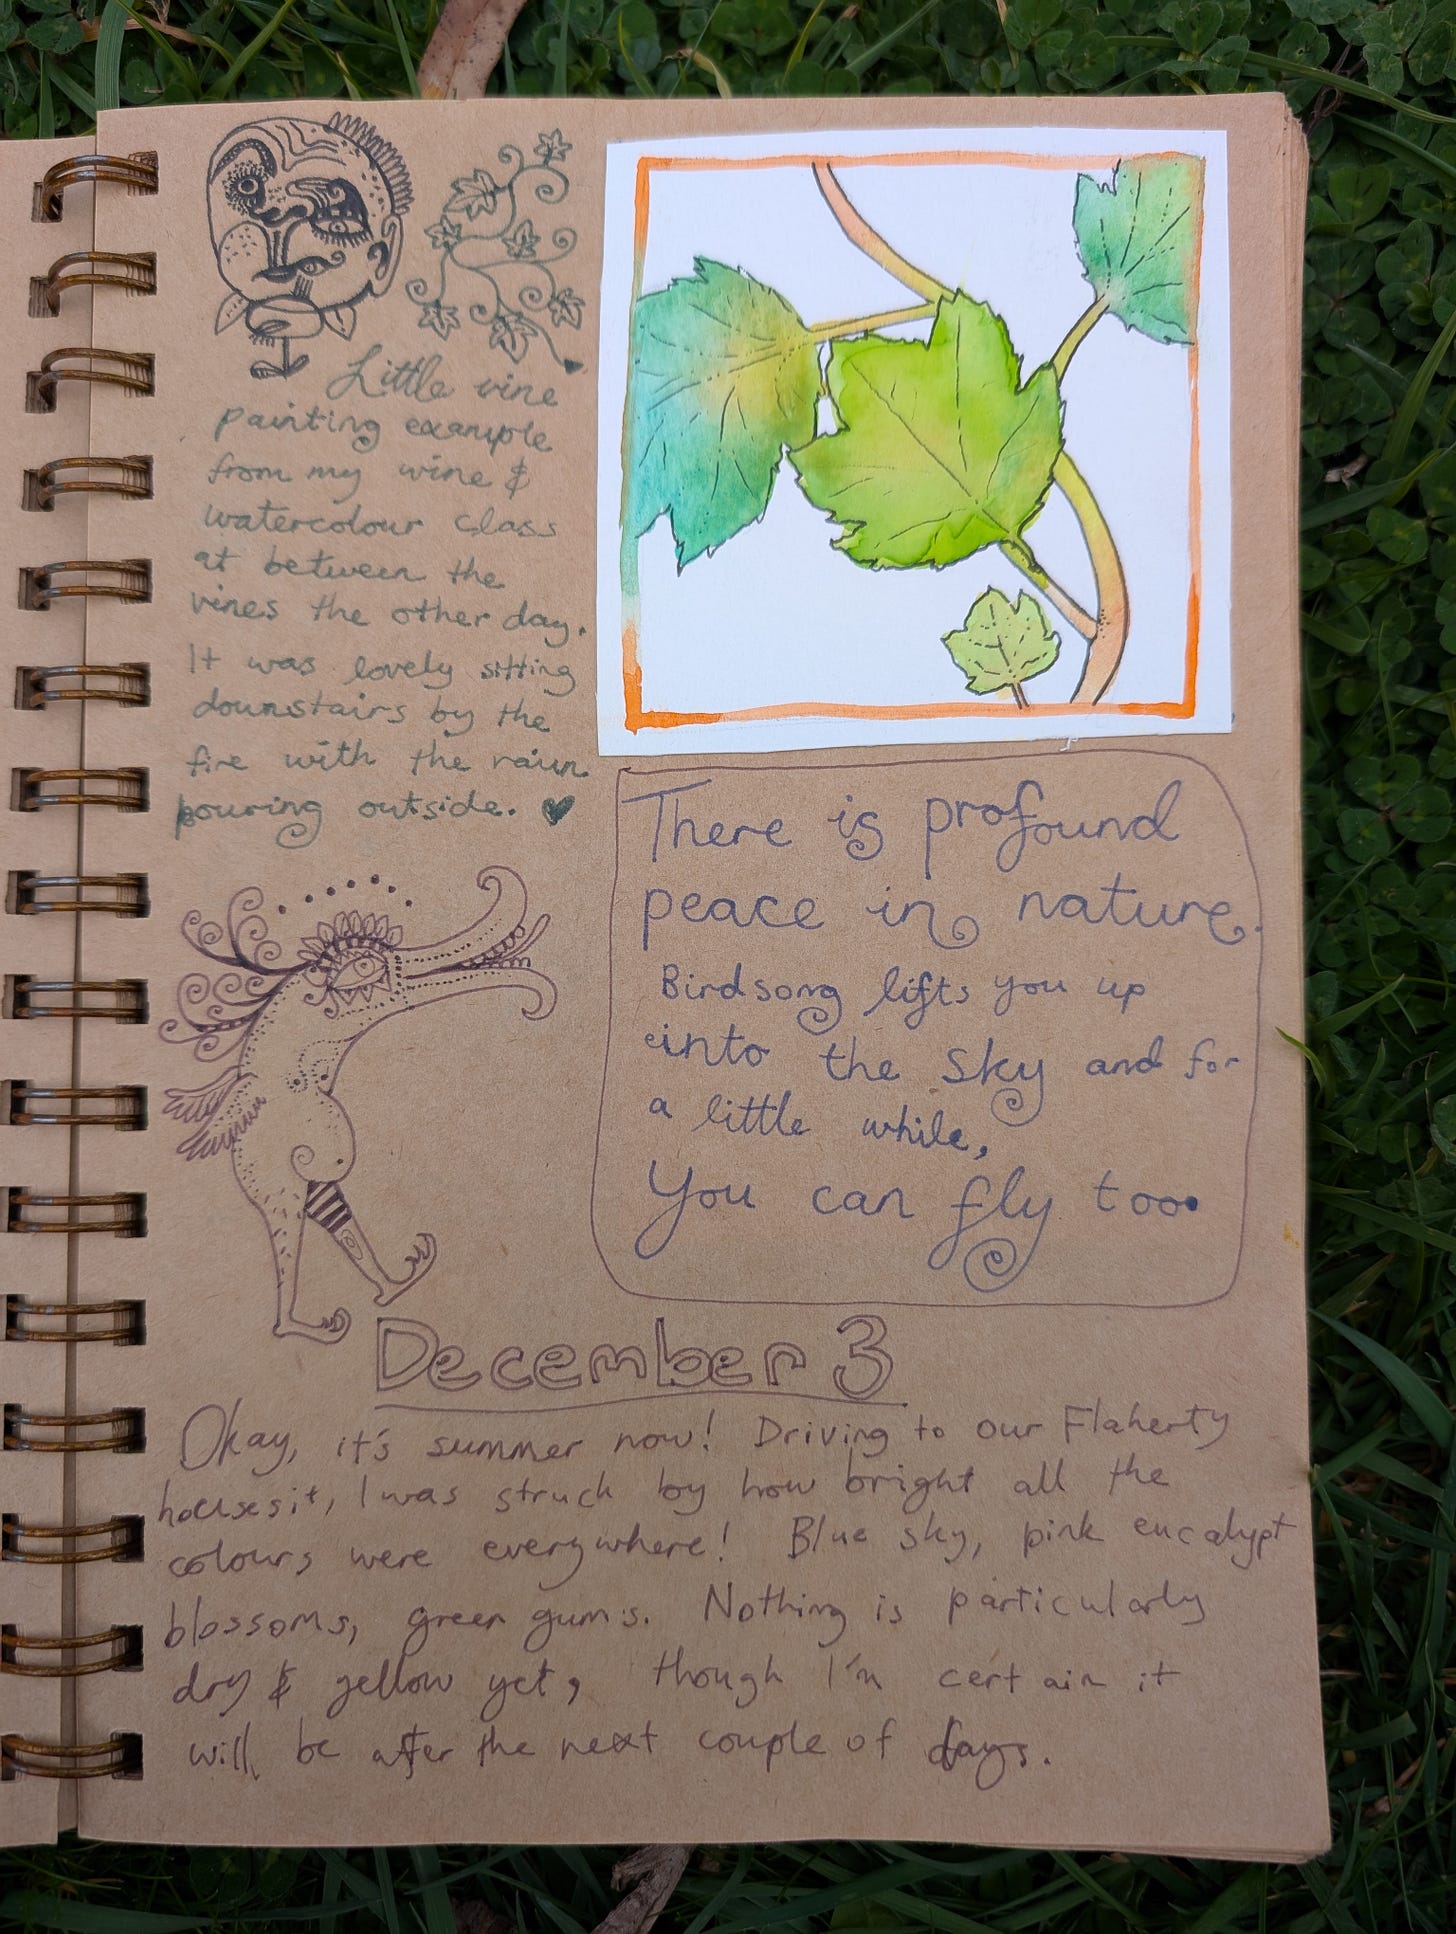 Little vine
painting example
from my wine &
watercolour class
at between the
vines the other day.
It was lovely sitting
downstairs by the
fire with the rain
pouring outside. ♥
There is profound
peace in nature.
Birdsong lifts you up
into the sky and for
a little while,
You can fly too.
December 3
Okay, it's summer now! Driving to our Flaherty
housesit, I was struck by how bright all the
colours were everywhere! Blue sky, pink eucalypt
blossoms, green gums. Nothing is particularly
dry & yellow yet, though I'm certain it
will be after the next couple of days.